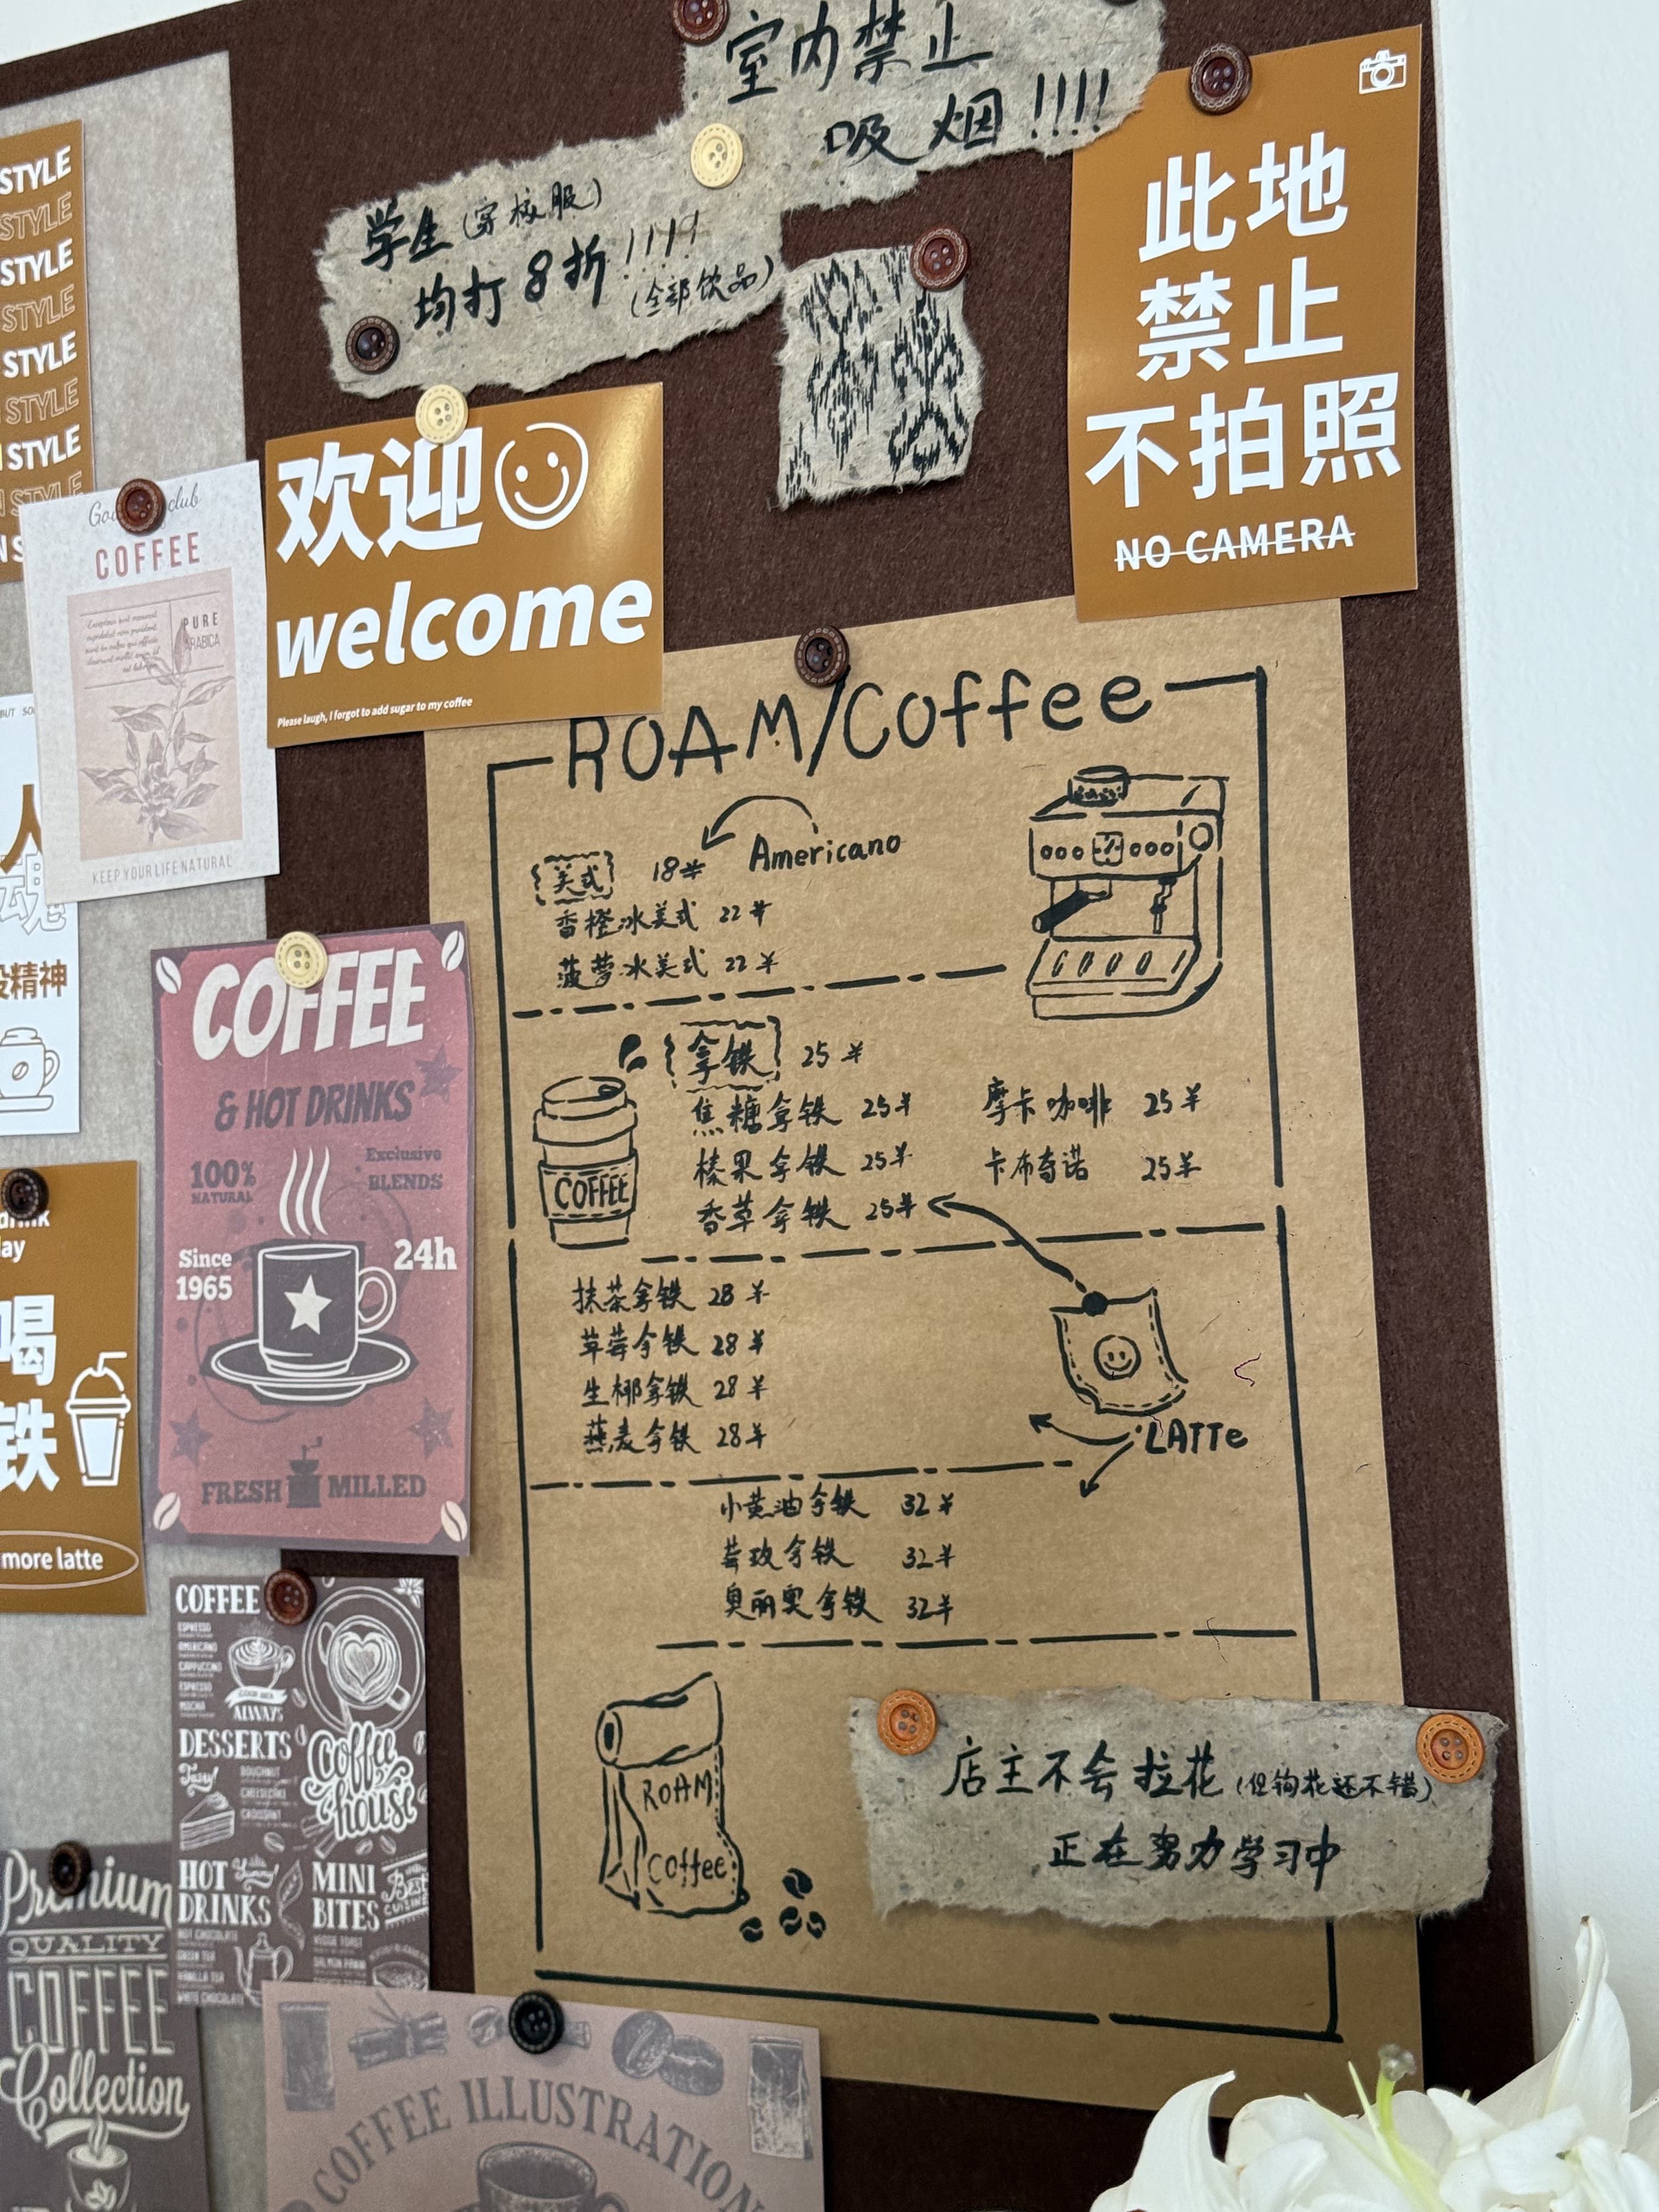 室内禁止
吸烟!!!!
学生(穿校服)
均打8折!!!!
(全部饮品)
此地
禁止
不拍照
NO CAMERA
欢迎
welcome
Please laugh, I forgot to add sugar to my coffee
STYLE
STYLE
STYLE
STYLE
STYLE
STYLE
STYLE
club
COFFEE
PURE
KEEP YOUR LIFE NATURAL
ROAM/Coffee
Americano
美式 18¥
香橙冰美式 22¥
菠萝冰美式 22¥
拿铁 25¥
焦糖拿铁 25¥ 摩卡咖啡 25¥
榛果拿铁 25¥ 卡布奇诺 25¥
香草拿铁 25¥
COFFEE
抹茶拿铁 28¥
草莓拿铁 28¥
生椰拿铁 28¥
燕麦拿铁 28¥
LATTe
小黄油拿铁 32¥
芸玫拿铁 32¥
奥丽奥拿铁 32¥
ROAM
Coffee
店主不会拉花(但钩花还不错)
正在努力学习中
COFFEE
& HOT DRINKS
100%
NATURAL
Exclusive
BLENDS
Since
1965
24h
FRESH MILLED
人
魂
精神
喝
铁
more latte
COFFEE
ESPRESSO
AMERICANO
CAPPUCCINO
ESPRESSO
MOCHA
ALWAYS
DESSERTS
Tasty!
DOUGHNUT
CHEESECAKE
CROISSANT
Coffee
house
HOT
DRINKS
HOT CHOCOLATE
GREEN TEA
VANILLA TEA
WHITE CHOCOLATE
MINI
BITES
Best
CUISINE
VEGGIE TOAST
Premium
QUALITY
COFFEE
Collection
COFFEE ILLUSTRATION